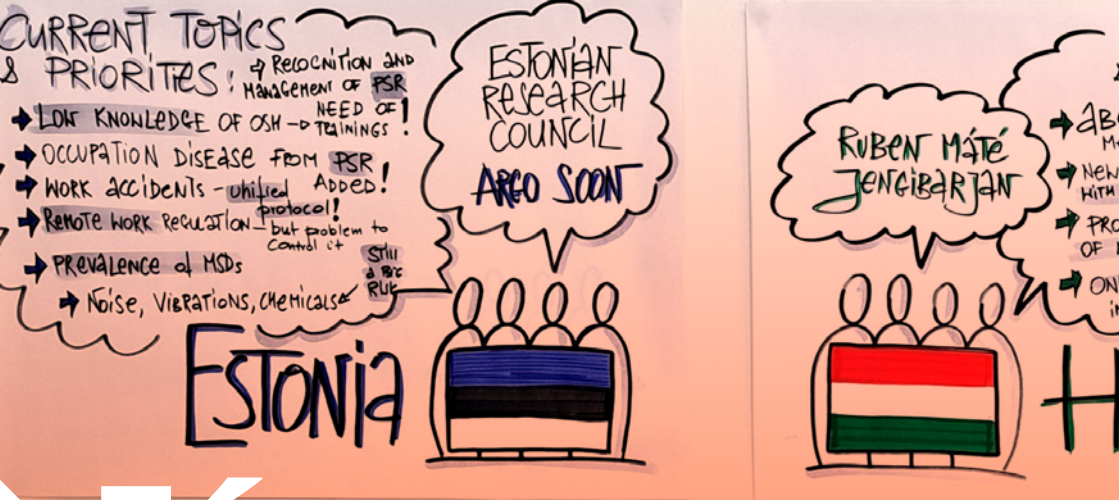 CURRENT TOPICS
& PRIORITIES:
→ RECOGNITION AND
MANAGEMENT OF PSR
→ LOW KNOWLEDGE OF OSH → NEED OF
TRAININGS!
→ OCCUPATION DISEASE FROM PSR
ADDED!
→ WORK ACCIDENTS - unified
protocol!
→ REMOTE WORK REGULATION - but problem to
control it
→ PREVALENCE of MSDs
→ NOISE, VIBRATIONS, CHEMICALS
STILL
a BIG
ESTONIA
ESTONIAN
RESEARCH
COUNCIL
ARGO SOON
RUBEN MÁTÉ
JENGIBARJAN
→
→
WITH
→
OF
→
H